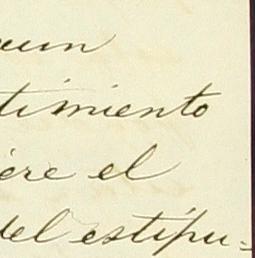 aun
timiento
iere el
del estipu-